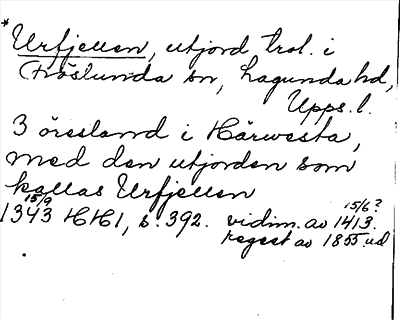 *Urfjellen, utjord trol. i
Fröslunda sn, Lagunda hd,
Upps. l.
3 öresland i Härwesta,
med den utjorden som
kallas Urfjellen
15/9 15/6?
1343 HH1, s. 392. vidim. av 1413.
regest av 1855 ud